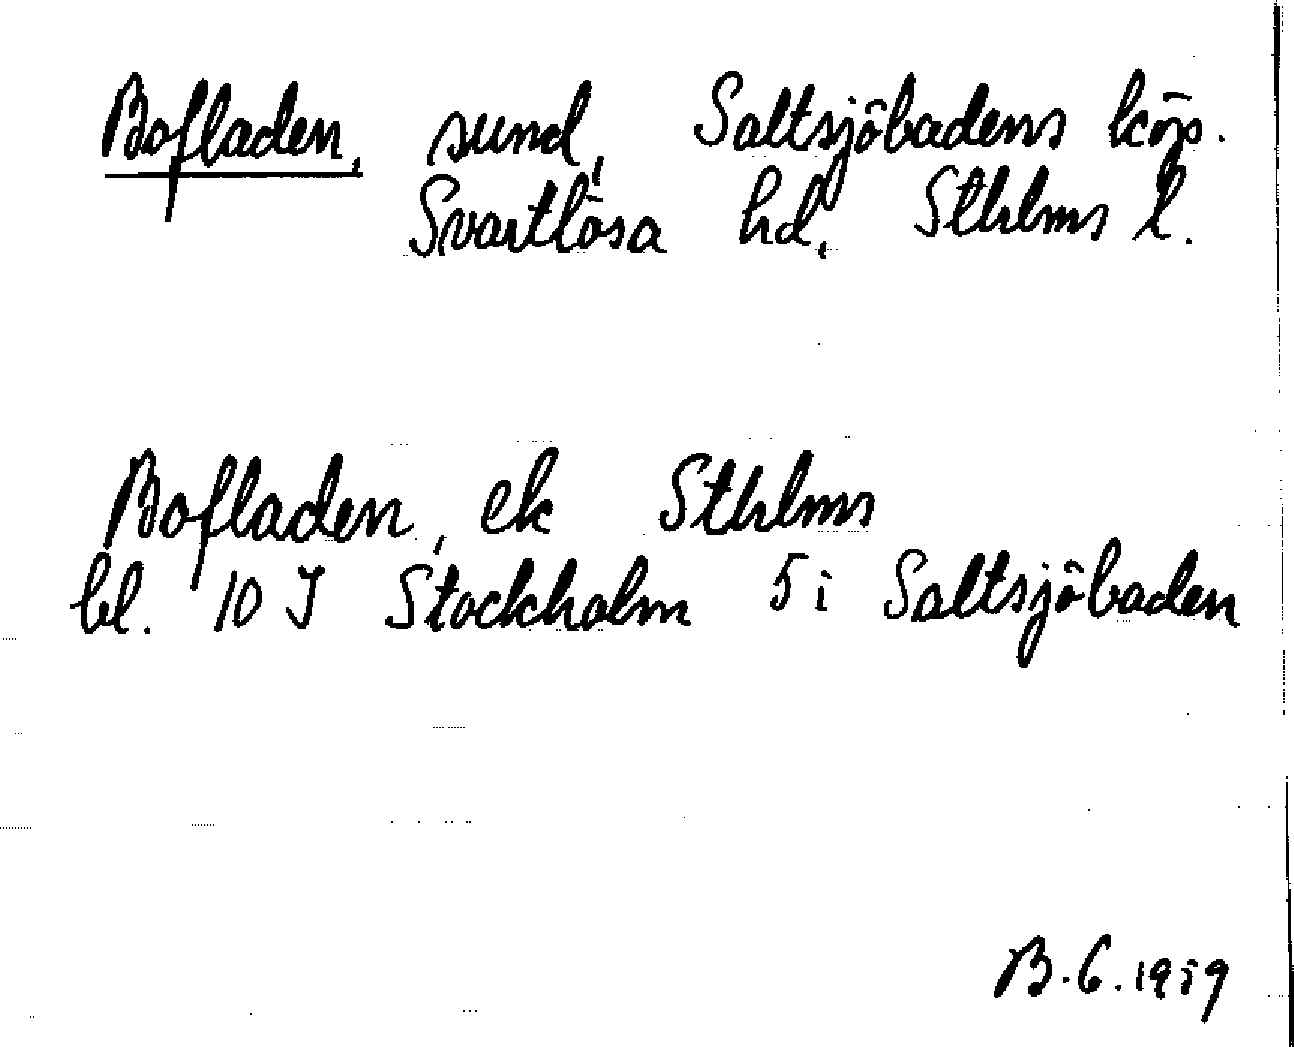 Bofladen, sund, Saltsjöbadens köp.
Svartlösa hd, Sthlms l.
Bofladen, ek Sthlms
bl. 10 J Stockholm 5 i Saltsjöbaden
B.G. 1959